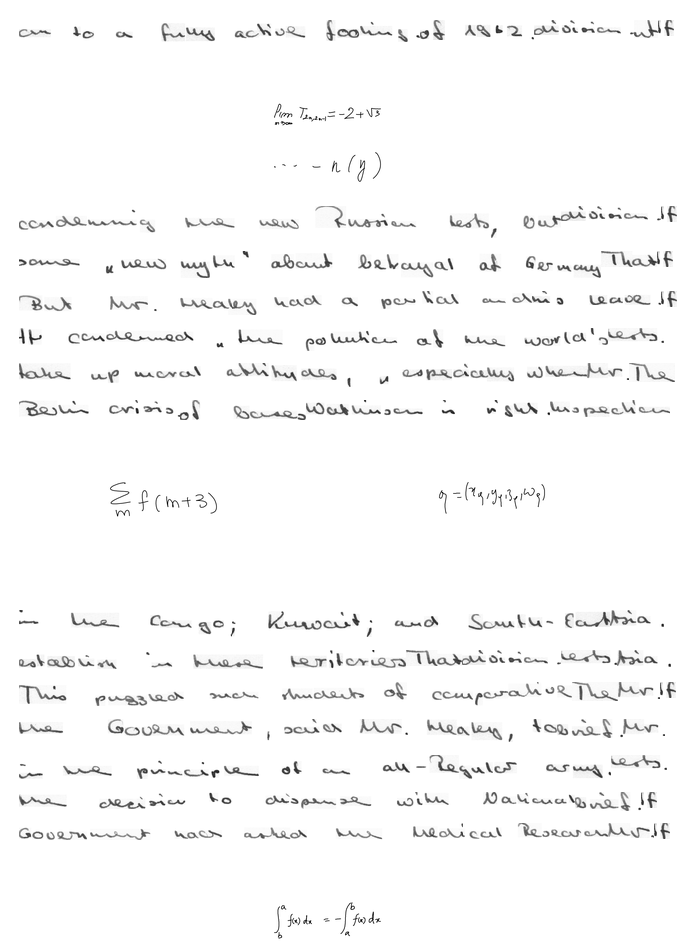 on to a fully active footing of 1962 division. If
\lim_{n \to \infty} T_{e_n, e_{n+1}} = -2 + \sqrt{3}
\cdots - n(y)
condemning the new Russian tests, but division. If
some "new myth" about betrayal of Germany That If
But Mr. Healey had a partial and his leave. If
It condemned "the pollution of the world's tests.
take up moral attitudes, "especially when Mr. The
Berlin crisis of bases Watkinson is right. Inspection
\sum_m f(m+3)
q = (x_q, y_q, z_q, w_q)
in the Congo; Kuwait; and South-East Asia.
establish in these territories That division. tests. Asia.
This puzzled such students of comparative The Mr. If
the Government, said Mr. Healey, to brief. Mr.
in the principle of an all-Regular army. tests.
the decision to dispense with National brief. If
Government had asked the Medical Research Mr. If
\int_b^a f(x) dx = -\int_a^b f(x) dx